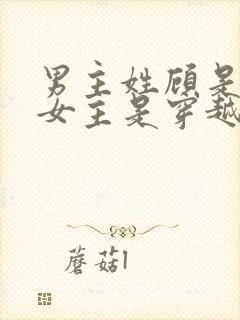 男主姓顾是
女主是穿越
蘑菇l